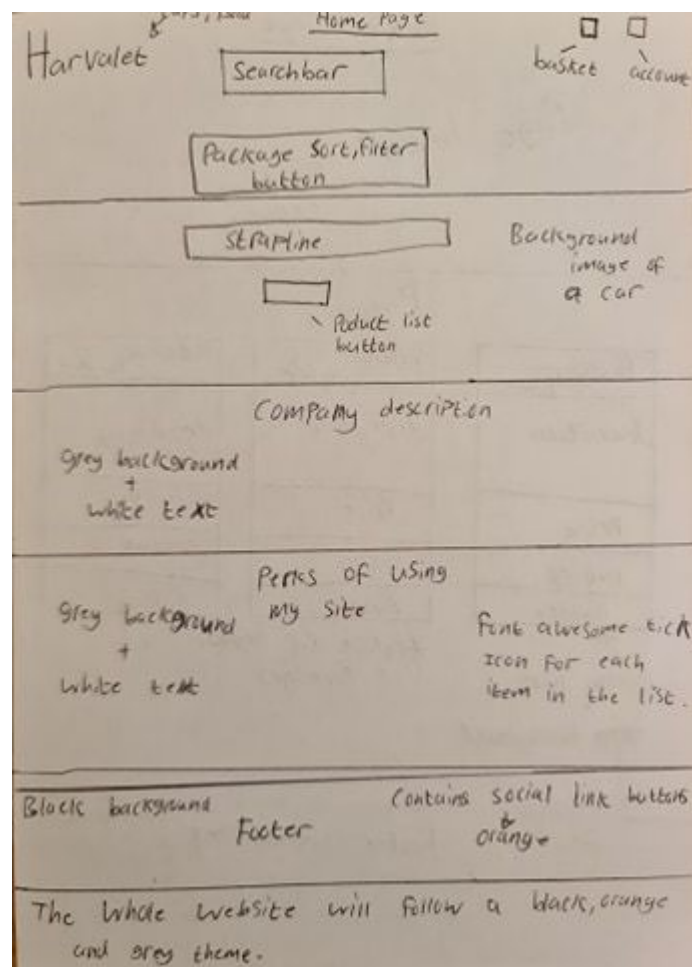 Home Page
Harvalet
Searchbar
basket
account
Package Sort, filter
button
Strapline
Background
image of
a car
Poduct list
button
Company description
grey background
+
white text
Perks of using
my site
grey background
+
white text
font awesome tick
Icon for each
item in the list.
Black background
Contains social link buttons
Footer
orange
The whole website will follow a black, orange
and grey theme.